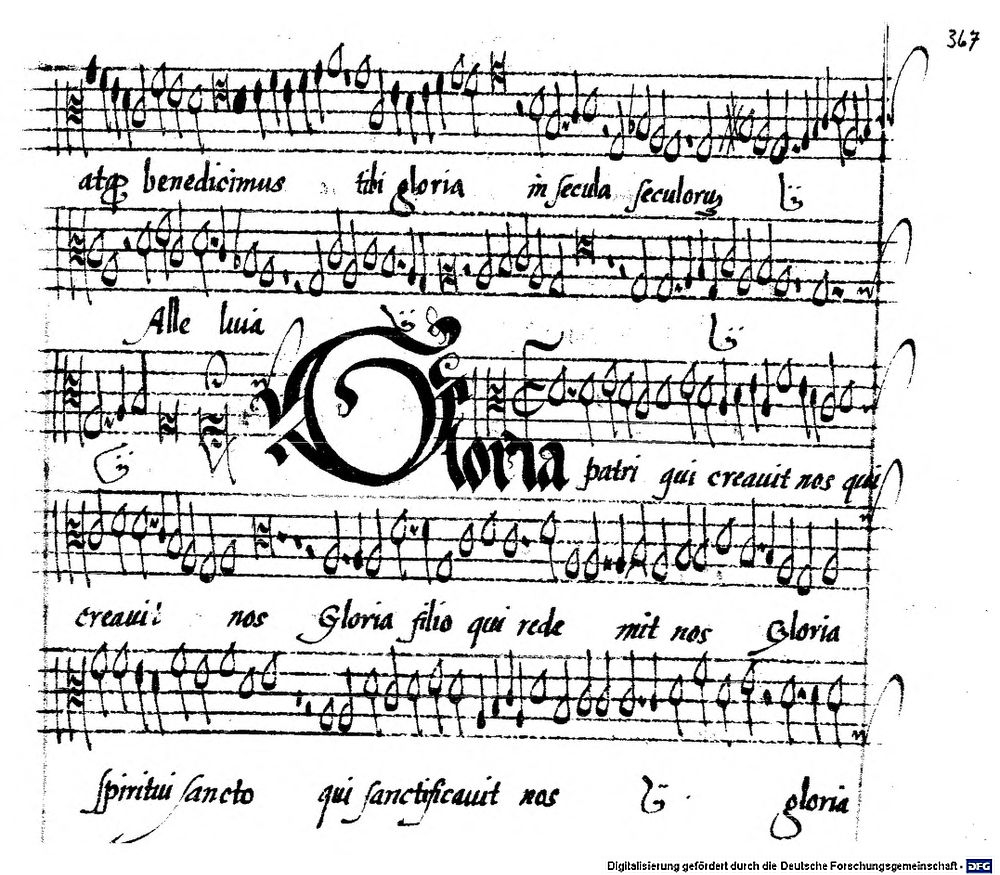 367
atq benedicimus tibi gloria in secula seculorum
Alle luia
Gloria patri qui creavit nos qui
creavit nos Gloria filio qui rede mit nos Gloria
spiritui sancto qui sanctificavit nos gloria
Digitalisierung gefördert durch die Deutsche Forschungsgemeinschaft - DFG